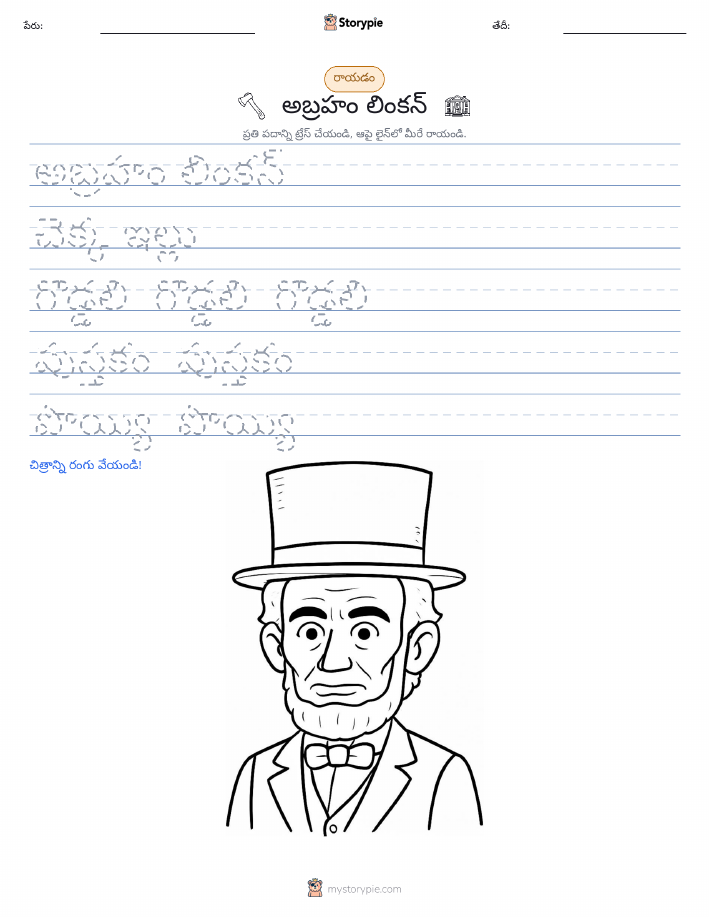 పేరు:
Storypie
తేదీ:
రాయడం
అబ్రహం లింకన్
ప్రతి పదాన్ని ట్రేస్ చేయండి, ఆపై లైన్‌లో మీరే రాయండి.
అబ్రహం లింకన్
చెక్క ఇల్లు
గొడ్డలి గొడ్డలి గొడ్డలి
పుస్తకం పుస్తకం
పొయ్యి పొయ్యి
చిత్రాన్ని రంగు వేయండి!
mystorypie.com